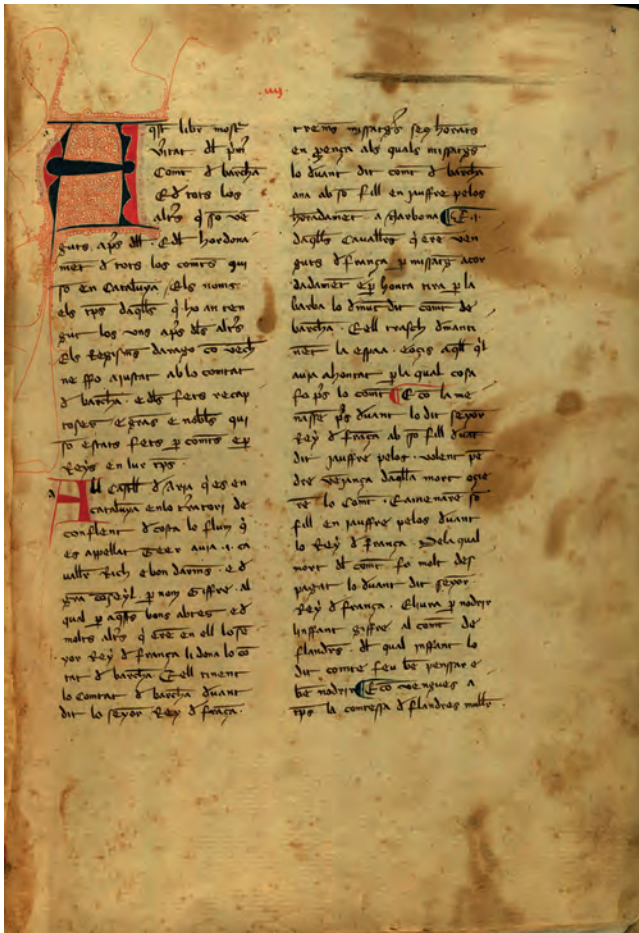 .iiij.
Aqst libr mostr
vitat dl pmr
Comt d barcha
E d tots los
altrs q so ve
guts aps dll . E dl hordona
met d tots los comts qui
so en Cataluya / Els noms
els tps daqlls q ho an ten
gut los vns aps dls altrs
Els Regisms darago co vech
ne sso aiustat ab lo comtat
d barcha . e dls fets recap
toses e gras e nobls qui
so estats fets p comts e p
Reys en lur tps .
All Castll d Aria q es en
cataluya en lo trratori de
conflent d costa lo flum q
es appellat Teer auia .i. ca
vallr Rich e bon darms . e d
gra coseyl p nom Giffre . al
qual p aqsts bons abtes e d
molts altrs q ere en ell lo se
yor Rey d frança li dona lo co
tat d barcha E ell tinent
lo Comtat d barcha duant
dit lo seyor Rey d fraça .
trems missatgs seus horats
en pença als quals missatgs
lo duant dit comt d barcha
ana ab so fill en jauffre pelos
horadamet . a Narbona E .i.
daqlls Cauallrs q ere ven
guts d frança p missatg acor
dadamet e p honta tira p la
barba lo dmut dit comt de
barcha . E ell trasch dmanti
net la espaa . e ocis aqll ql
auia ahontat . p la qual cosa
fo ps lo comt E co la me
nasse ps duant lo dit seyor
Rey d fraça ab so fill duat
dit jauffre pelos . volent pe
dre vejança daqlla mort ocie
re lo Comt . E amenare so
fill en jauffre pelos duant
lo Rey d frança . Dela qual
mort dl comt fo molt des
pagat lo duant dit seyor
Rey d frança . E liura p nodrir
linffant giffre al comt de
flandrs . dl qual inffant lo
dit comte feu be penssar e
be nodrir E co vengues a
tps la contessa d flandres mullr